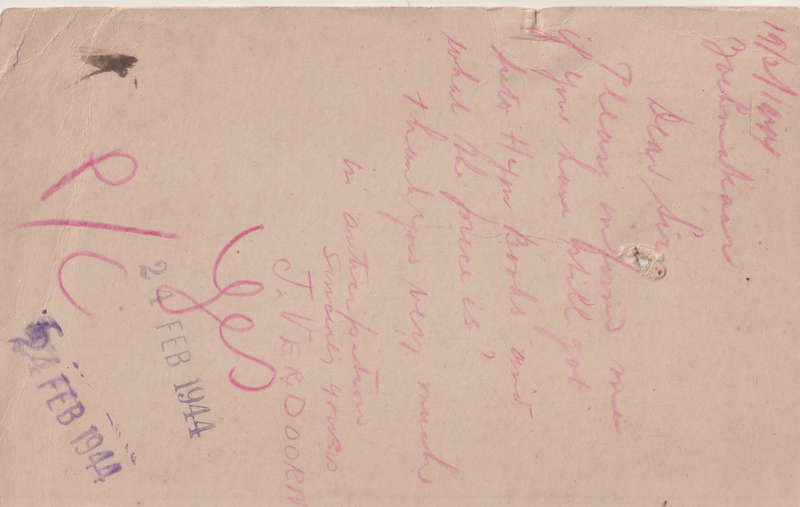 19/2/1944
Dear Sir,
Please inform me
if you have still got
Hymn Books and
what the price is?
thank you very much
in anticipation
Sincerely yours
J. VERDOORN
Yes
P/C
24 FEB 1944
24 FEB 1944